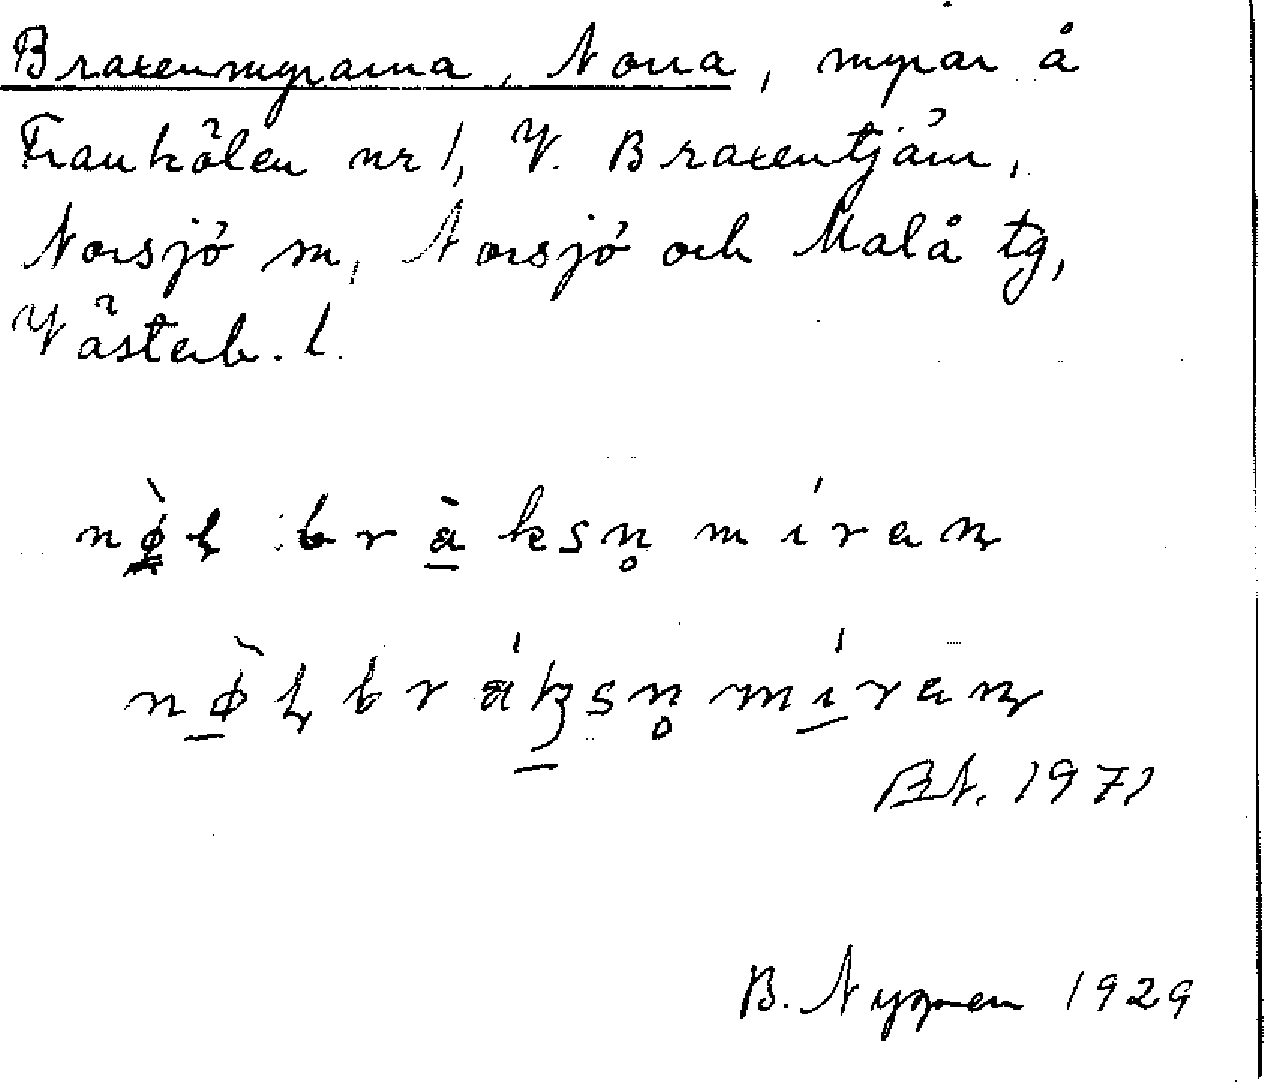 Braxenmyrarna, Norra, myrar å
Trankölen nr 1, V. Braxentjärn,
Norsjö sn, Norsjö och Malå tg,
Västerb. l.
nø̀ʈ bràksn̥ míraɳ
nø̀ɖ bráksn̥ míraɳ
BN. 1971
B. Nygren 1929